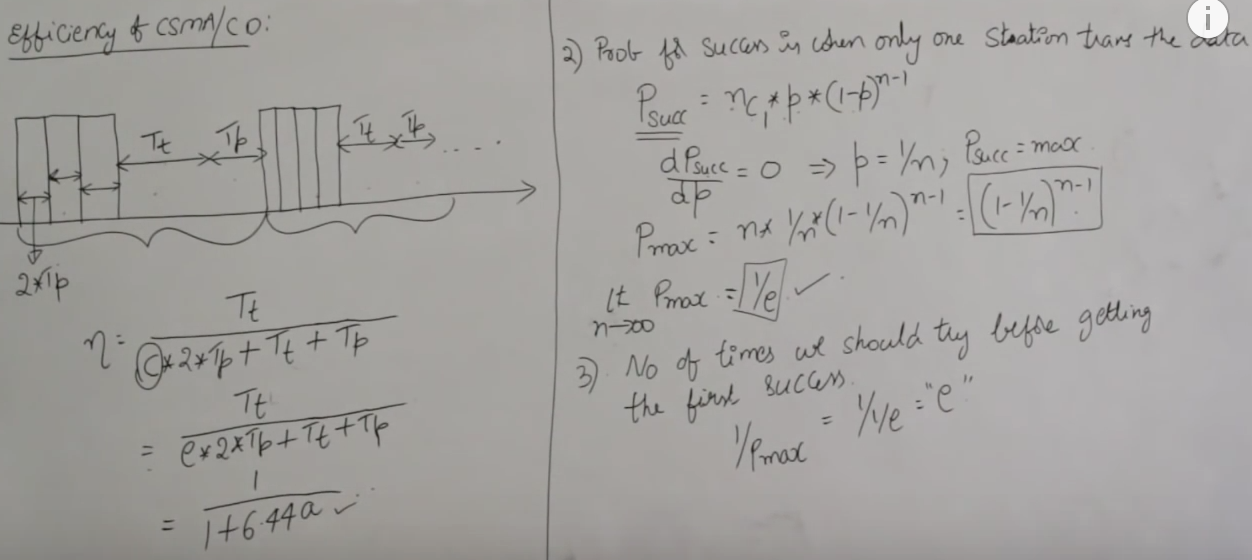 Efficiency of CSMA/CD:
Tt Tp Tt Tp ....
2*Tp
η = Tt / (C*2*Tp + Tt + Tp)
= Tt / (e*2*Tp + Tt + Tp)
= 1 / (1+6.44a) ✓
2) Prob for success is when only one Station trans the data
Psucc = nC₁ * p * (1-p)ⁿ⁻¹
dPsucc/dp = 0 ⇒ p = 1/n; Psucc = max.
Pmax = n* 1/n * (1-1/n)ⁿ⁻¹ = (1-1/n)ⁿ⁻¹
lt n→∞ Pmax = 1/e ✓
3) No of times we should try before getting
the first success.
1/Pmax = 1/1/e = "e"
i